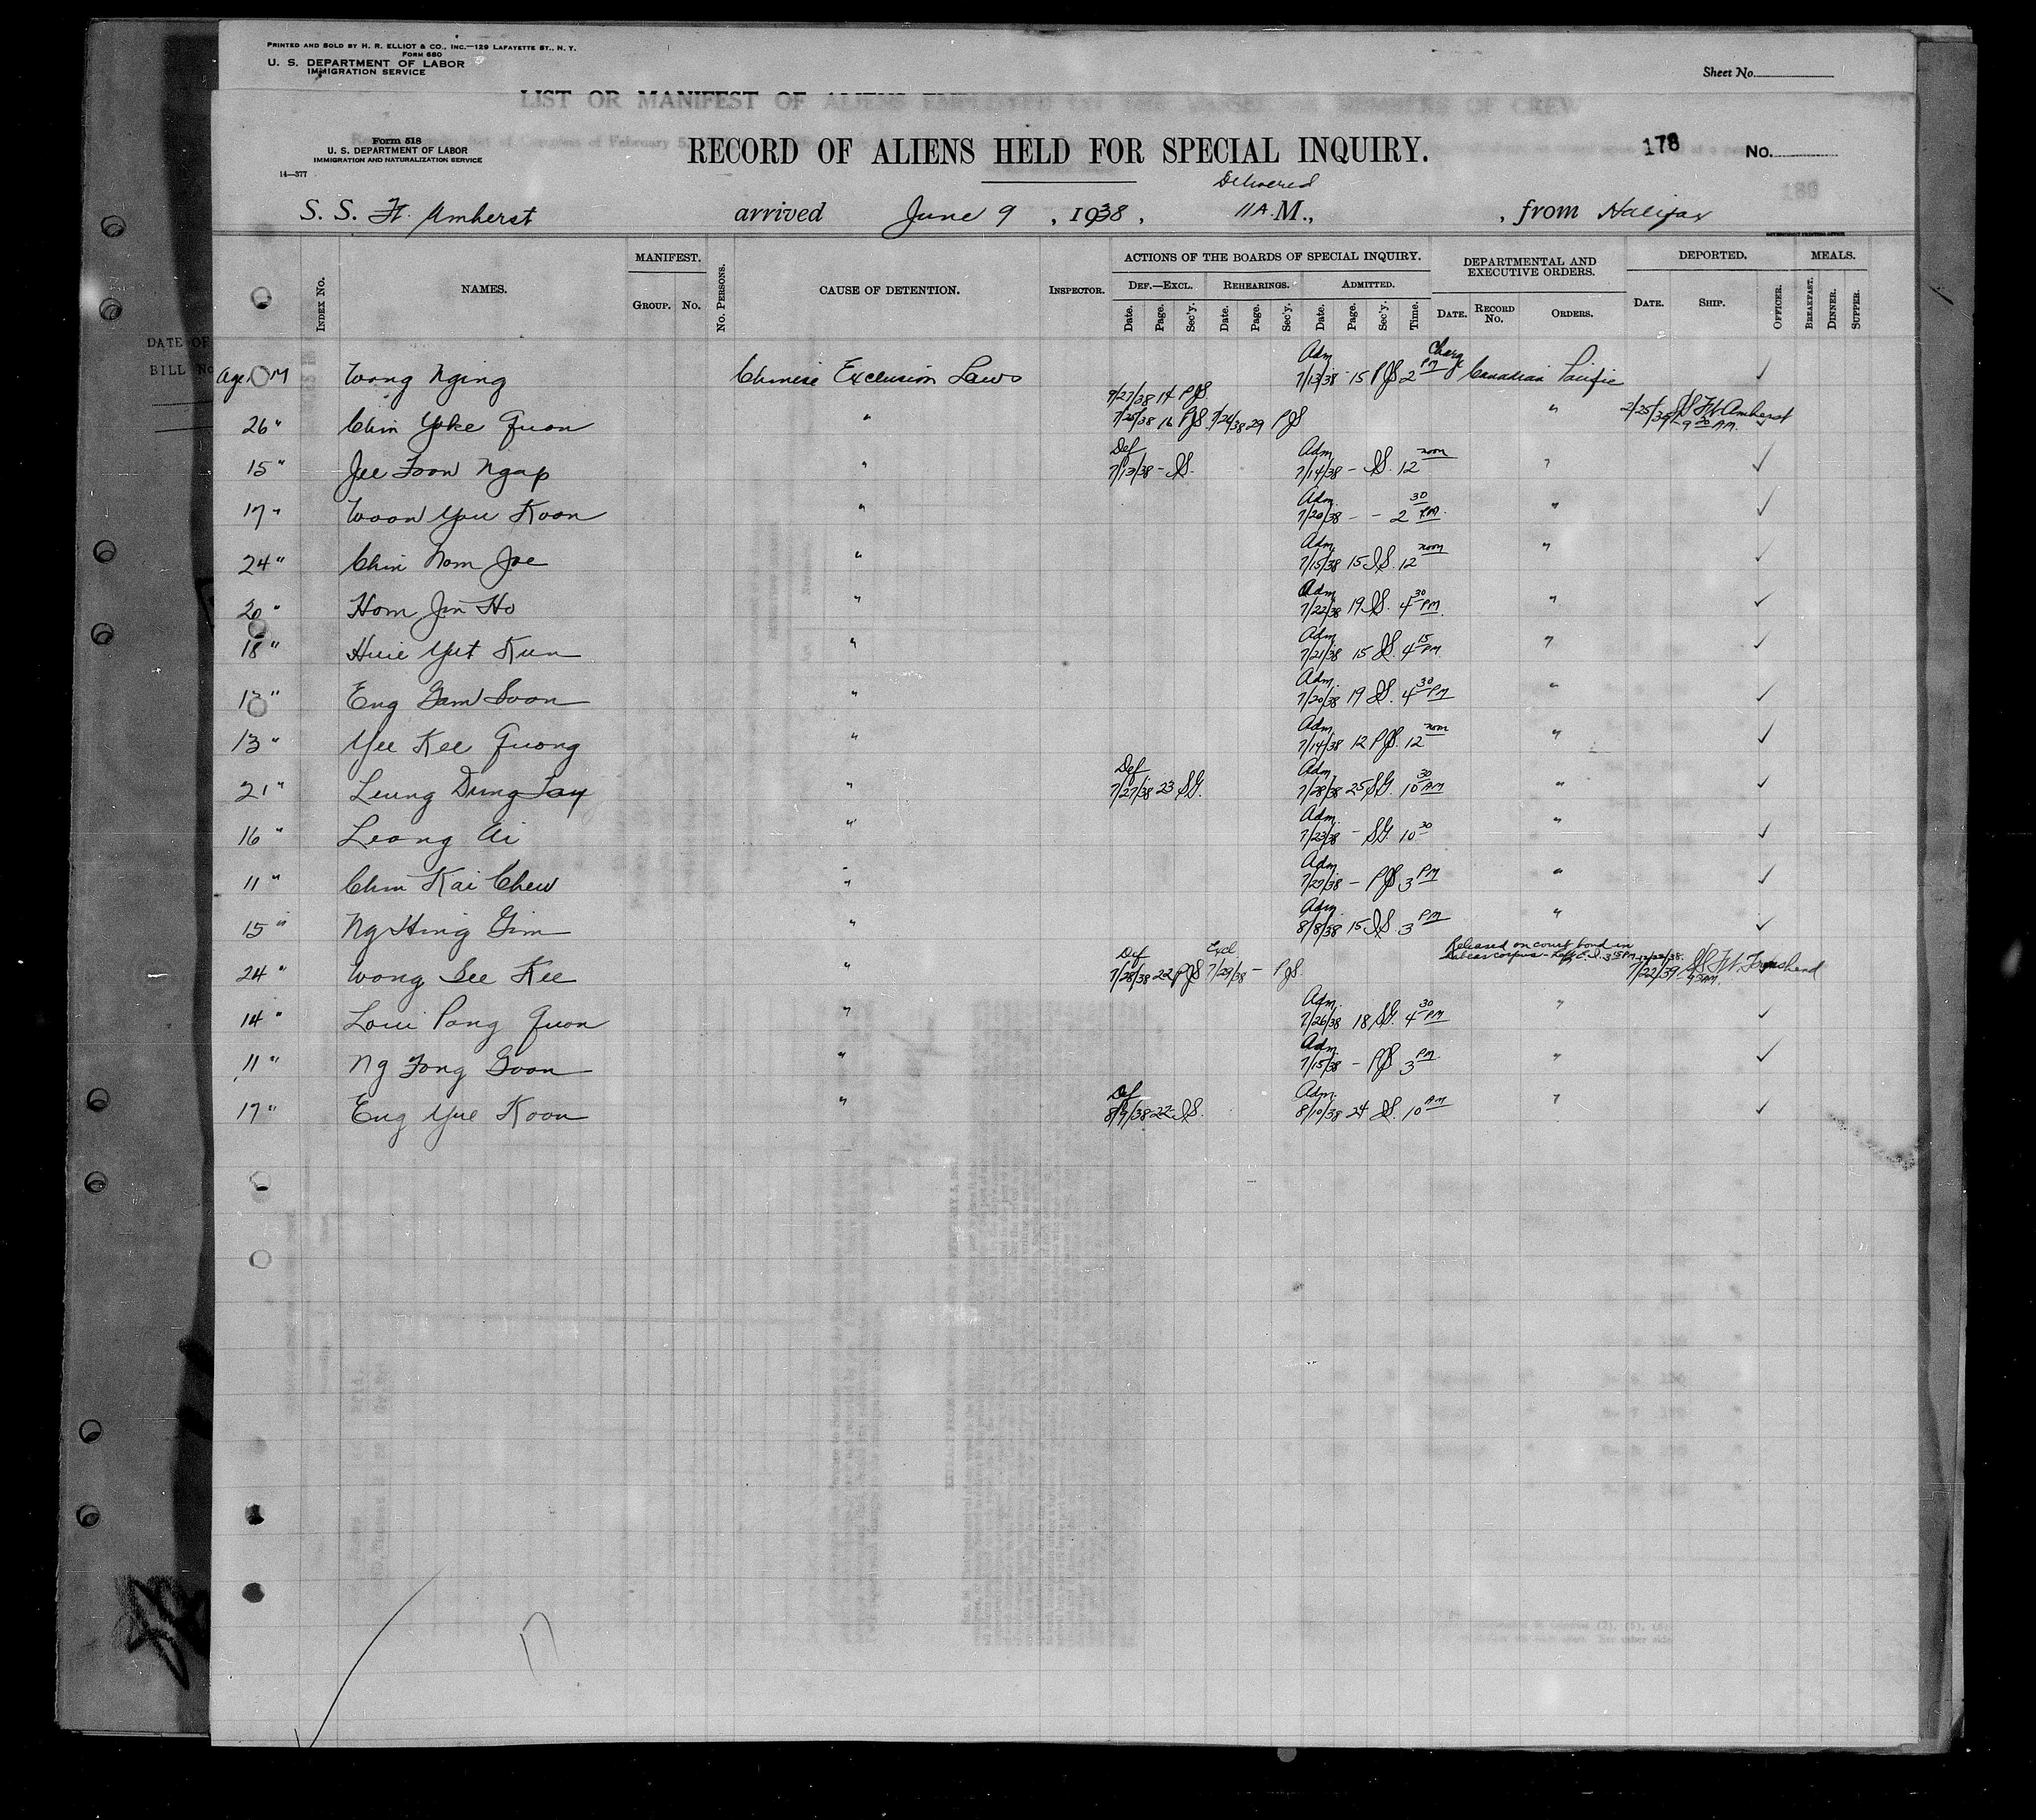 PRINTED AND SOLD BY H. R. ELLIOT & CO., INC.—129 LAFAYETTE ST., N. Y.
FORM 680
U. S. DEPARTMENT OF LABOR
IMMIGRATION SERVICE
Sheet No.
LIST OR MANIFEST OF ALIENS EMPLOYED ON THE VESSEL AS MEMBERS OF CREW
Form 518
U. S. DEPARTMENT OF LABOR
IMMIGRATION AND NATURALIZATION SERVICE
14—377
RECORD OF ALIENS HELD FOR SPECIAL INQUIRY.
178 No.
180
Delivered
S. S. Ft. Amherst arrived June 9, 1938, 11 A. M., , from Halifax
DATE OF
BILL No
INDEX No. NAMES. MANIFEST. GROUP. No. No. PERSONS. CAUSE OF DETENTION. INSPECTOR. ACTIONS OF THE BOARDS OF SPECIAL INQUIRY. DEPARTMENTAL AND EXECUTIVE ORDERS. DEPORTED. MEALS.
DEF.—EXCL. REHEARINGS. ADMITTED.
Date. Page. Sec'y. Date. Page. Sec'y. Date. Page. Sec'y. Time. DATE. RECORD No. ORDERS. DATE. SHIP. OFFICER. BREAKFAST. DINNER. SUPPER.
Age M Wong Nging Chinese Exclusion Laws Adm 7/13/38 15 PJS 2 PM Charge Canadian Pacific ✓
7/27/38 14 PJS
26 " Chin Yoke Quon " 7/25/38 16 PJS 7/26/38 29 PJS " 2/25/39 SS Ft Amherst 9 AM. ✓
15 " Jee Foon Ngap " Def 7/13/38 - IS. Adm 7/14/38 - IS. 12 noon " ✓
17 " Woon You Koon " Adm. 7/20/38 - - 2 30 PM. " ✓
24 " Chin Nom Joe " Adm 7/15/38 15 IS. 12 noon " ✓
20 " Hom Jin Ho " Adm 7/22/38 19 IS. 4 30 PM. " ✓
18 " Huie Yut Kun " Adm 7/21/38 15 IS. 4 15 PM " ✓
13 " Eng Gam Soon " Adm. 7/20/38 19 IS. 4 30 PM " ✓
13 " Yee Kee Quong " Adm 7/14/38 12 PJS. 12 noon " ✓
21 " Leung Dung Tay " Def 7/27/38 23 SG. Adm 7/28/38 25 SG. 10 30 AM " ✓
16 " Leong Ai " Adm. 7/23/38 - SG. 10 30 " ✓
11 " Chin Kai Chew " Adm 7/27/38 - PJS 3 PM " ✓
15 " Ng Hing Gim " Adm. 8/8/38 15 IS 3 PM " ✓
24 " Wong See Kee " Def 7/28/38 22 PJS Excl 7/29/38 - PJS. Released on court bond in habeas corpus - 7/22/39 SS Ft. Townshend 9 AM.
14 " Loui Pang Quon " Adm. 7/26/38 18 SG. 4 30 PM " ✓
11 " Ng Fong Goon " Adm. 7/15/38 - PJS 3 PM " ✓
17 " Eng Yue Koon " Def 8/9/38 22 IS. Adm. 8/10/38 24 IS. 10 AM " ✓
17